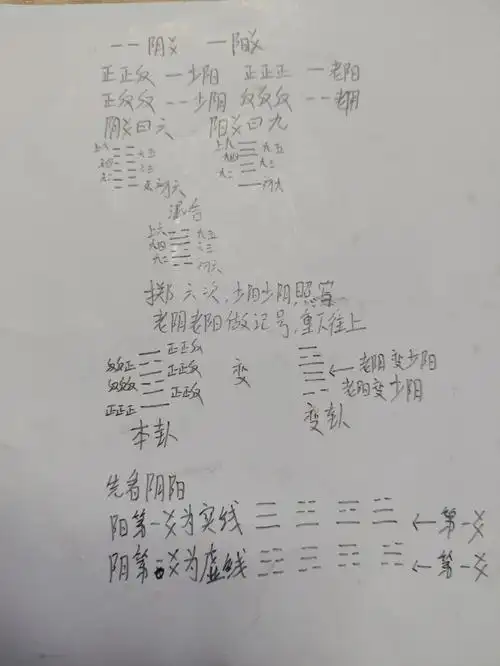 -- 阴爻 — 阳爻
正正反 — 少阳 正正正 — 老阳
正反反 -- 少阴 反反反 -- 老阴
阴爻曰六 阳爻曰九
上六 六五 上九 九五
九四 九三
初六
混合
上六 九五
九四 六三
九二 初六
掷六次,少阳少阴,照写
老阴老阳做记号,重下往上
正正反
反反正 正正反
反反反 变 ← 老阴变少阳
正正正 正正反 老阳变少阴
本卦 变卦
先看阴阳
阳第一爻为实线 ← 第一爻
阴第一爻为虚线 ← 第一爻